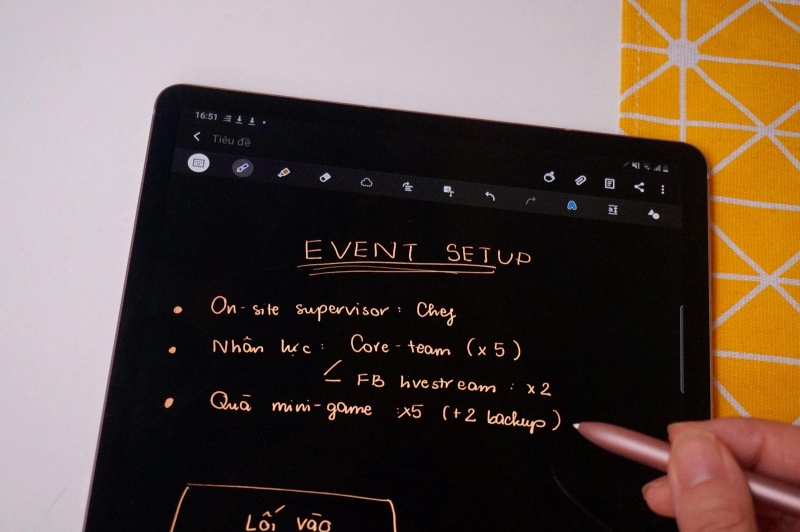 16:51
Tiêu đề
EVENT SETUP
• On-site supervisor : Chef
• Nhân lực : Core-team (x5)
FB livestream : x2
• Quà mini-game : x5 (+2 backup)
Lối vào